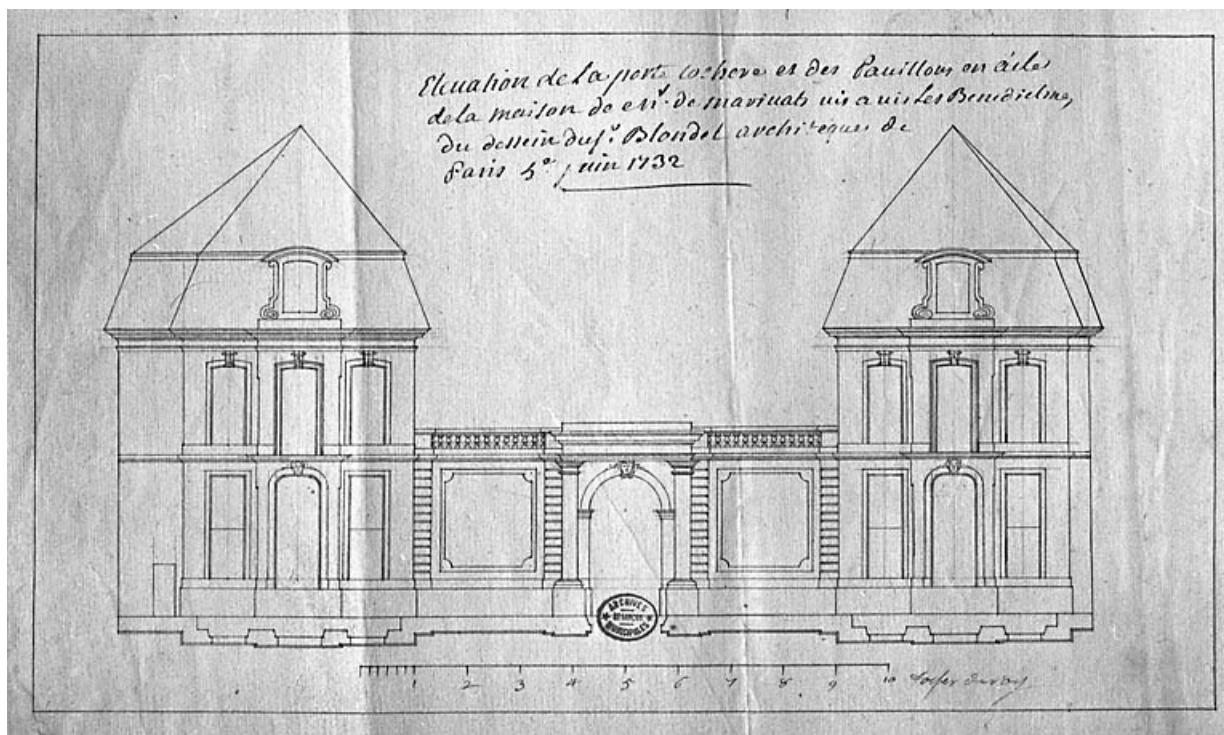 Elevation de la porte cochere et des Pavillons en aîles
de la maison de Mr. de marivats vis a vis Les Benedictins,
du dessein du Sr. Blondel architeque de
Paris 5e juin 1732
ARCHIVES
BESANÇON
MUNICIPALES
1 2 3 4 5 6 7 8 9 10 du Roy